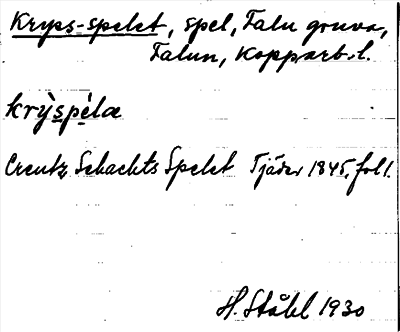 Kryss-spelet, spel, Falu gruva,
Falun, Kopparb. l.
krỳspèlæ
Creutz Schachts Spelet Tjäder 1845, fol 1.
H. Ståhl 1930